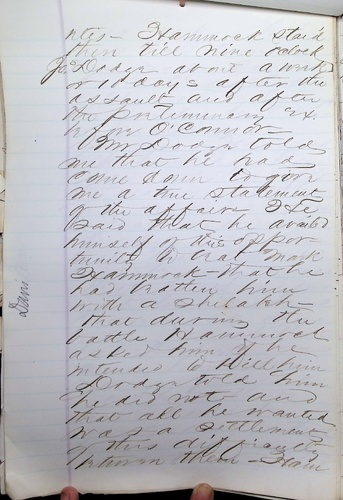 utes - Hammock staid
then till nine oclock
Jno Dodge about a week
or 10 days after the
assault and after
the preliminary ex
by Gov O'Connor -
Mr Dodge told
me that he had
come down to give
me a true statement
of the affair. He
said that he availed
himself of this oppor-
tunity to that
Hammock - that he
had him
with a
that during the
battle Hammock
asked him if he
intended to kill him
Dodge told him
he did not and
that all he wanted
was a settlement
of this difficulty
between them - Ham
Davi